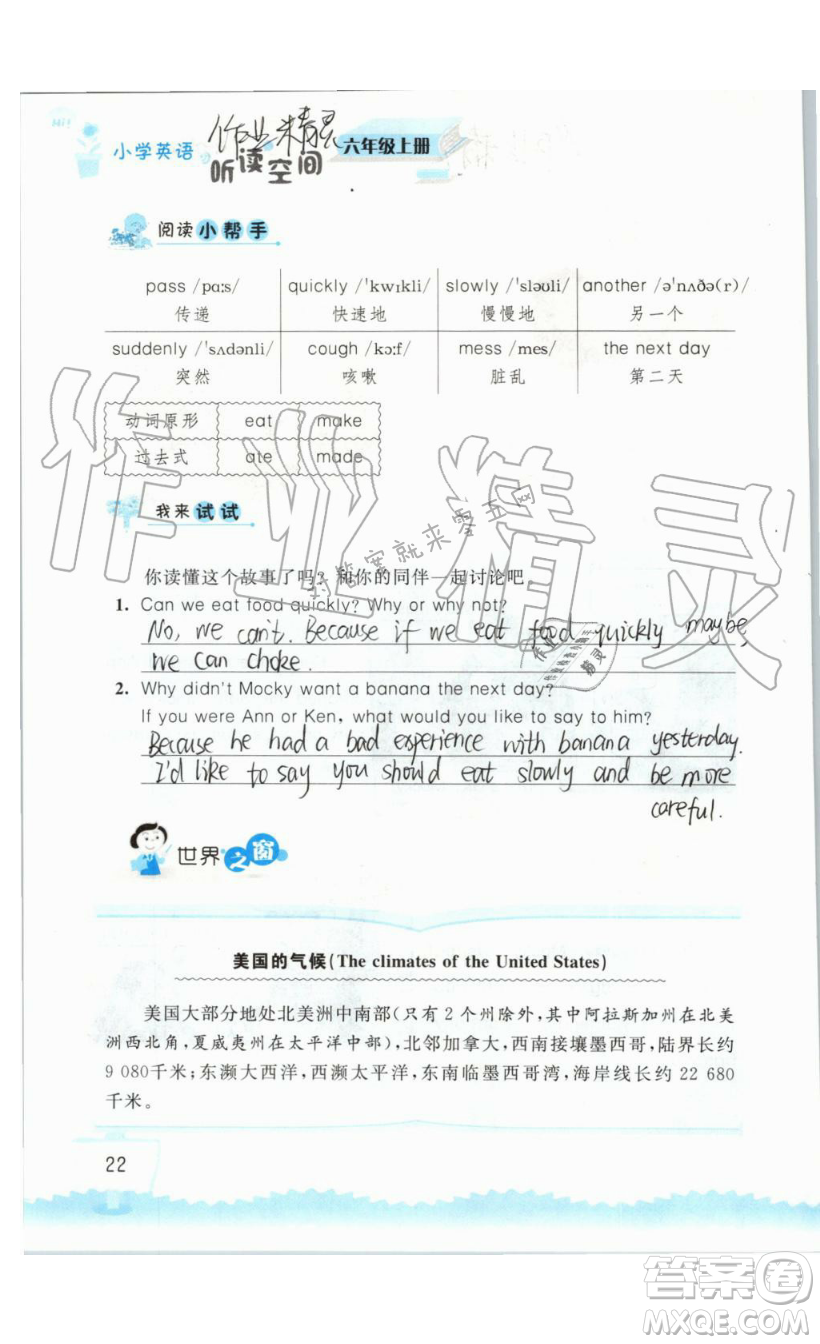 Hi!
小学英语
作业精灵
听读空间
六年级上册
阅读小帮手
pass /pɑːs/ quickly /ˈkwɪkli/ slowly /ˈsləʊli/ another /əˈnʌðə(r)/
传递 快速地 慢慢地 另一个
suddenly /ˈsʌdənli/ cough /kɔːf/ mess /mes/ the next day
突然 咳嗽 脏乱 第二天
动词原形 eat make
过去式 ate made
我来试试
你读懂这个故事了吗？和你的同伴一起讨论吧。
1. Can we eat food quickly? Why or why not?
No, we can't. Because if we eat food quickly maybe
we can choke.
2. Why didn't Mocky want a banana the next day?
If you were Ann or Ken, what would you like to say to him?
Because he had a bad experience with banana yesterday.
I'd like to say you should eat slowly and be more
careful.
世界之窗
美国的气候(The climates of the United States)
美国大部分地处北美洲中南部(只有 2 个州除外，其中阿拉斯加州在北美
洲西北角，夏威夷州在太平洋中部)，北邻加拿大，西南接壤墨西哥，陆界长约
9 080千米；东濒大西洋，西濒太平洋，东南临墨西哥湾，海岸线长约 22 680
千米。
22
作业精灵
对答案就来零五网
作业精灵
答案卷
MXQE.COM